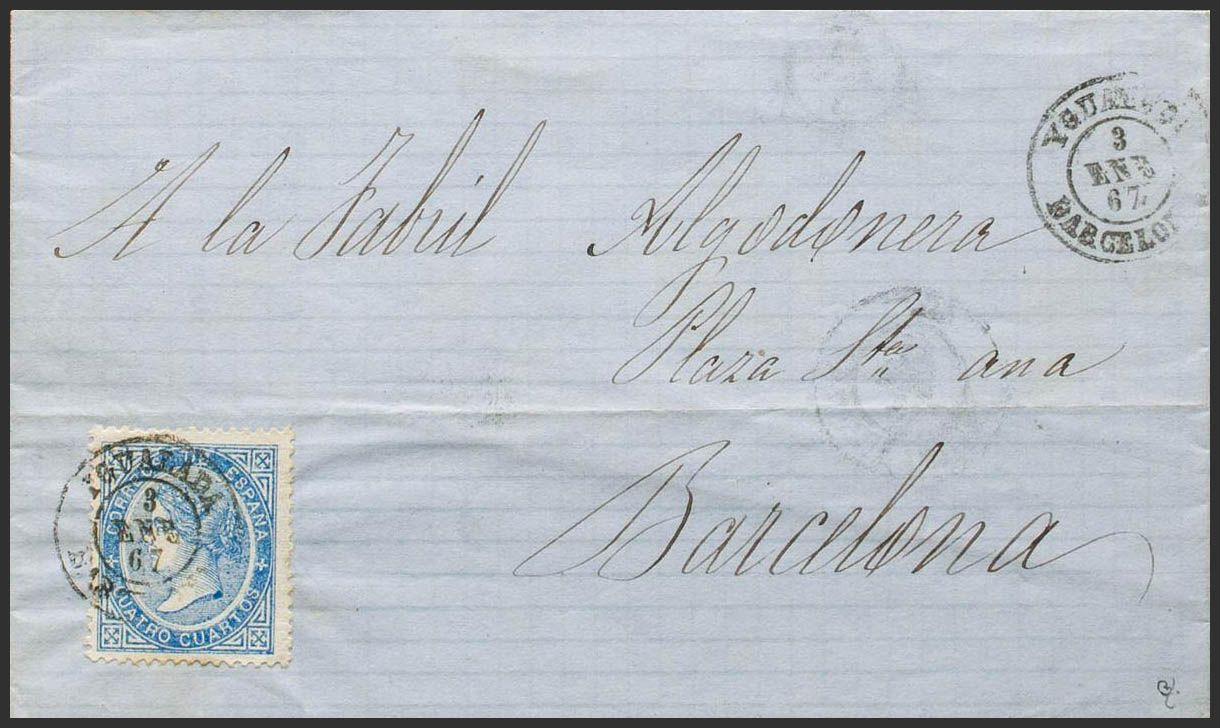 YGUALADA
3
ENE
67
BARCELON
A la Fabril Algodonera
Plaza Sta ana
Barcelona
YGUALADA
3
ENE
67
CORREOS DE ESPAÑA
CUATRO CUARTOS